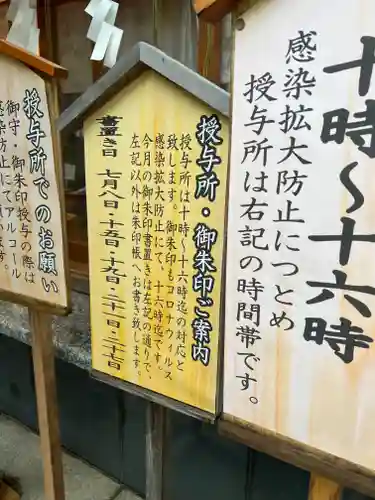 十時〜十六時
感染拡大防止につとめ
授与所は右記の時間帯です。
授与所・御朱印ご案内
授与所は十時〜十六時迄の対応と
致します。御朱印もコロナウィルス
感染防止にて、十六時迄です。
今月の御朱印書置きは左記の通りで、
左記以外は朱印帳へお書き致します。
書置き日 七月八日・十五日・十九日・二十一日・二十七日
授与所でのお願い
御守・御朱印授与の際は
感染防止にてアルコール